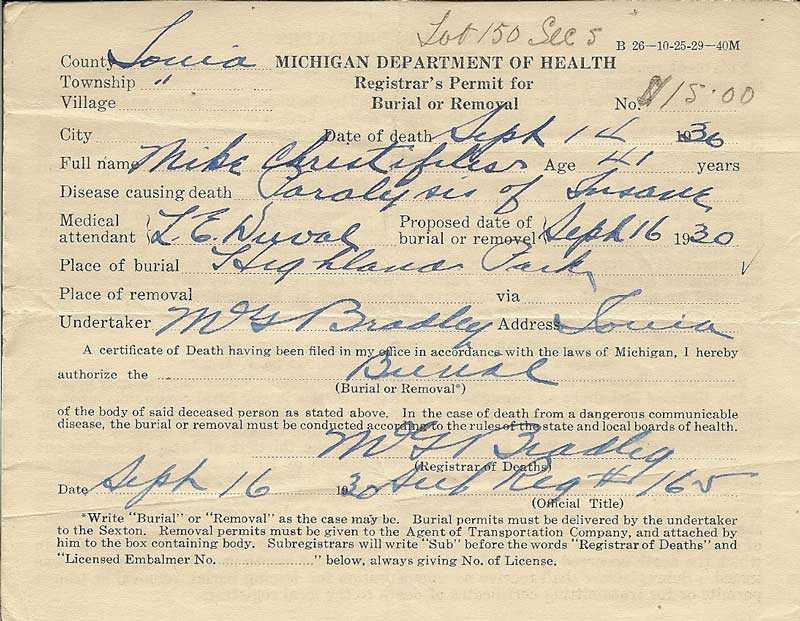 Lot 150 Sec 5
B 26—10-25-29—40M
County Ionia MICHIGAN DEPARTMENT OF HEALTH
Township " Registrar's Permit for
Village Burial or Removal No. 15.00
City Date of death Sept 14 1930
Full name Mike Age 41 years
Disease causing death Paralysis of Insane
Medical attendant L. E. Duval Proposed date of burial or removel Sept 16 1930
Place of burial Highland Park
Place of removal via
Undertaker McG Bradley Address Ionia
A certificate of Death having been filed in my office in accordance with the laws of Michigan, I hereby
authorize the Burial
(Burial or Removal*)
of the body of said deceased person as stated above. In the case of death from a dangerous communicable
disease, the burial or removal must be conducted according to the rules of the state and local boards of health.
McG Bradley
(Registrar of Deaths)
Date Sept 16 1930 Sub Reg # 165
(Official Title)
*Write "Burial" or "Removal" as the case may be. Burial permits must be delivered by the undertaker
to the Sexton. Removal permits must be given to the Agent of Transportation Company, and attached by
him to the box containing body. Subregistrars will write "Sub" before the words "Registrar of Deaths" and
"Licensed Embalmer No. " below, always giving No. of License.